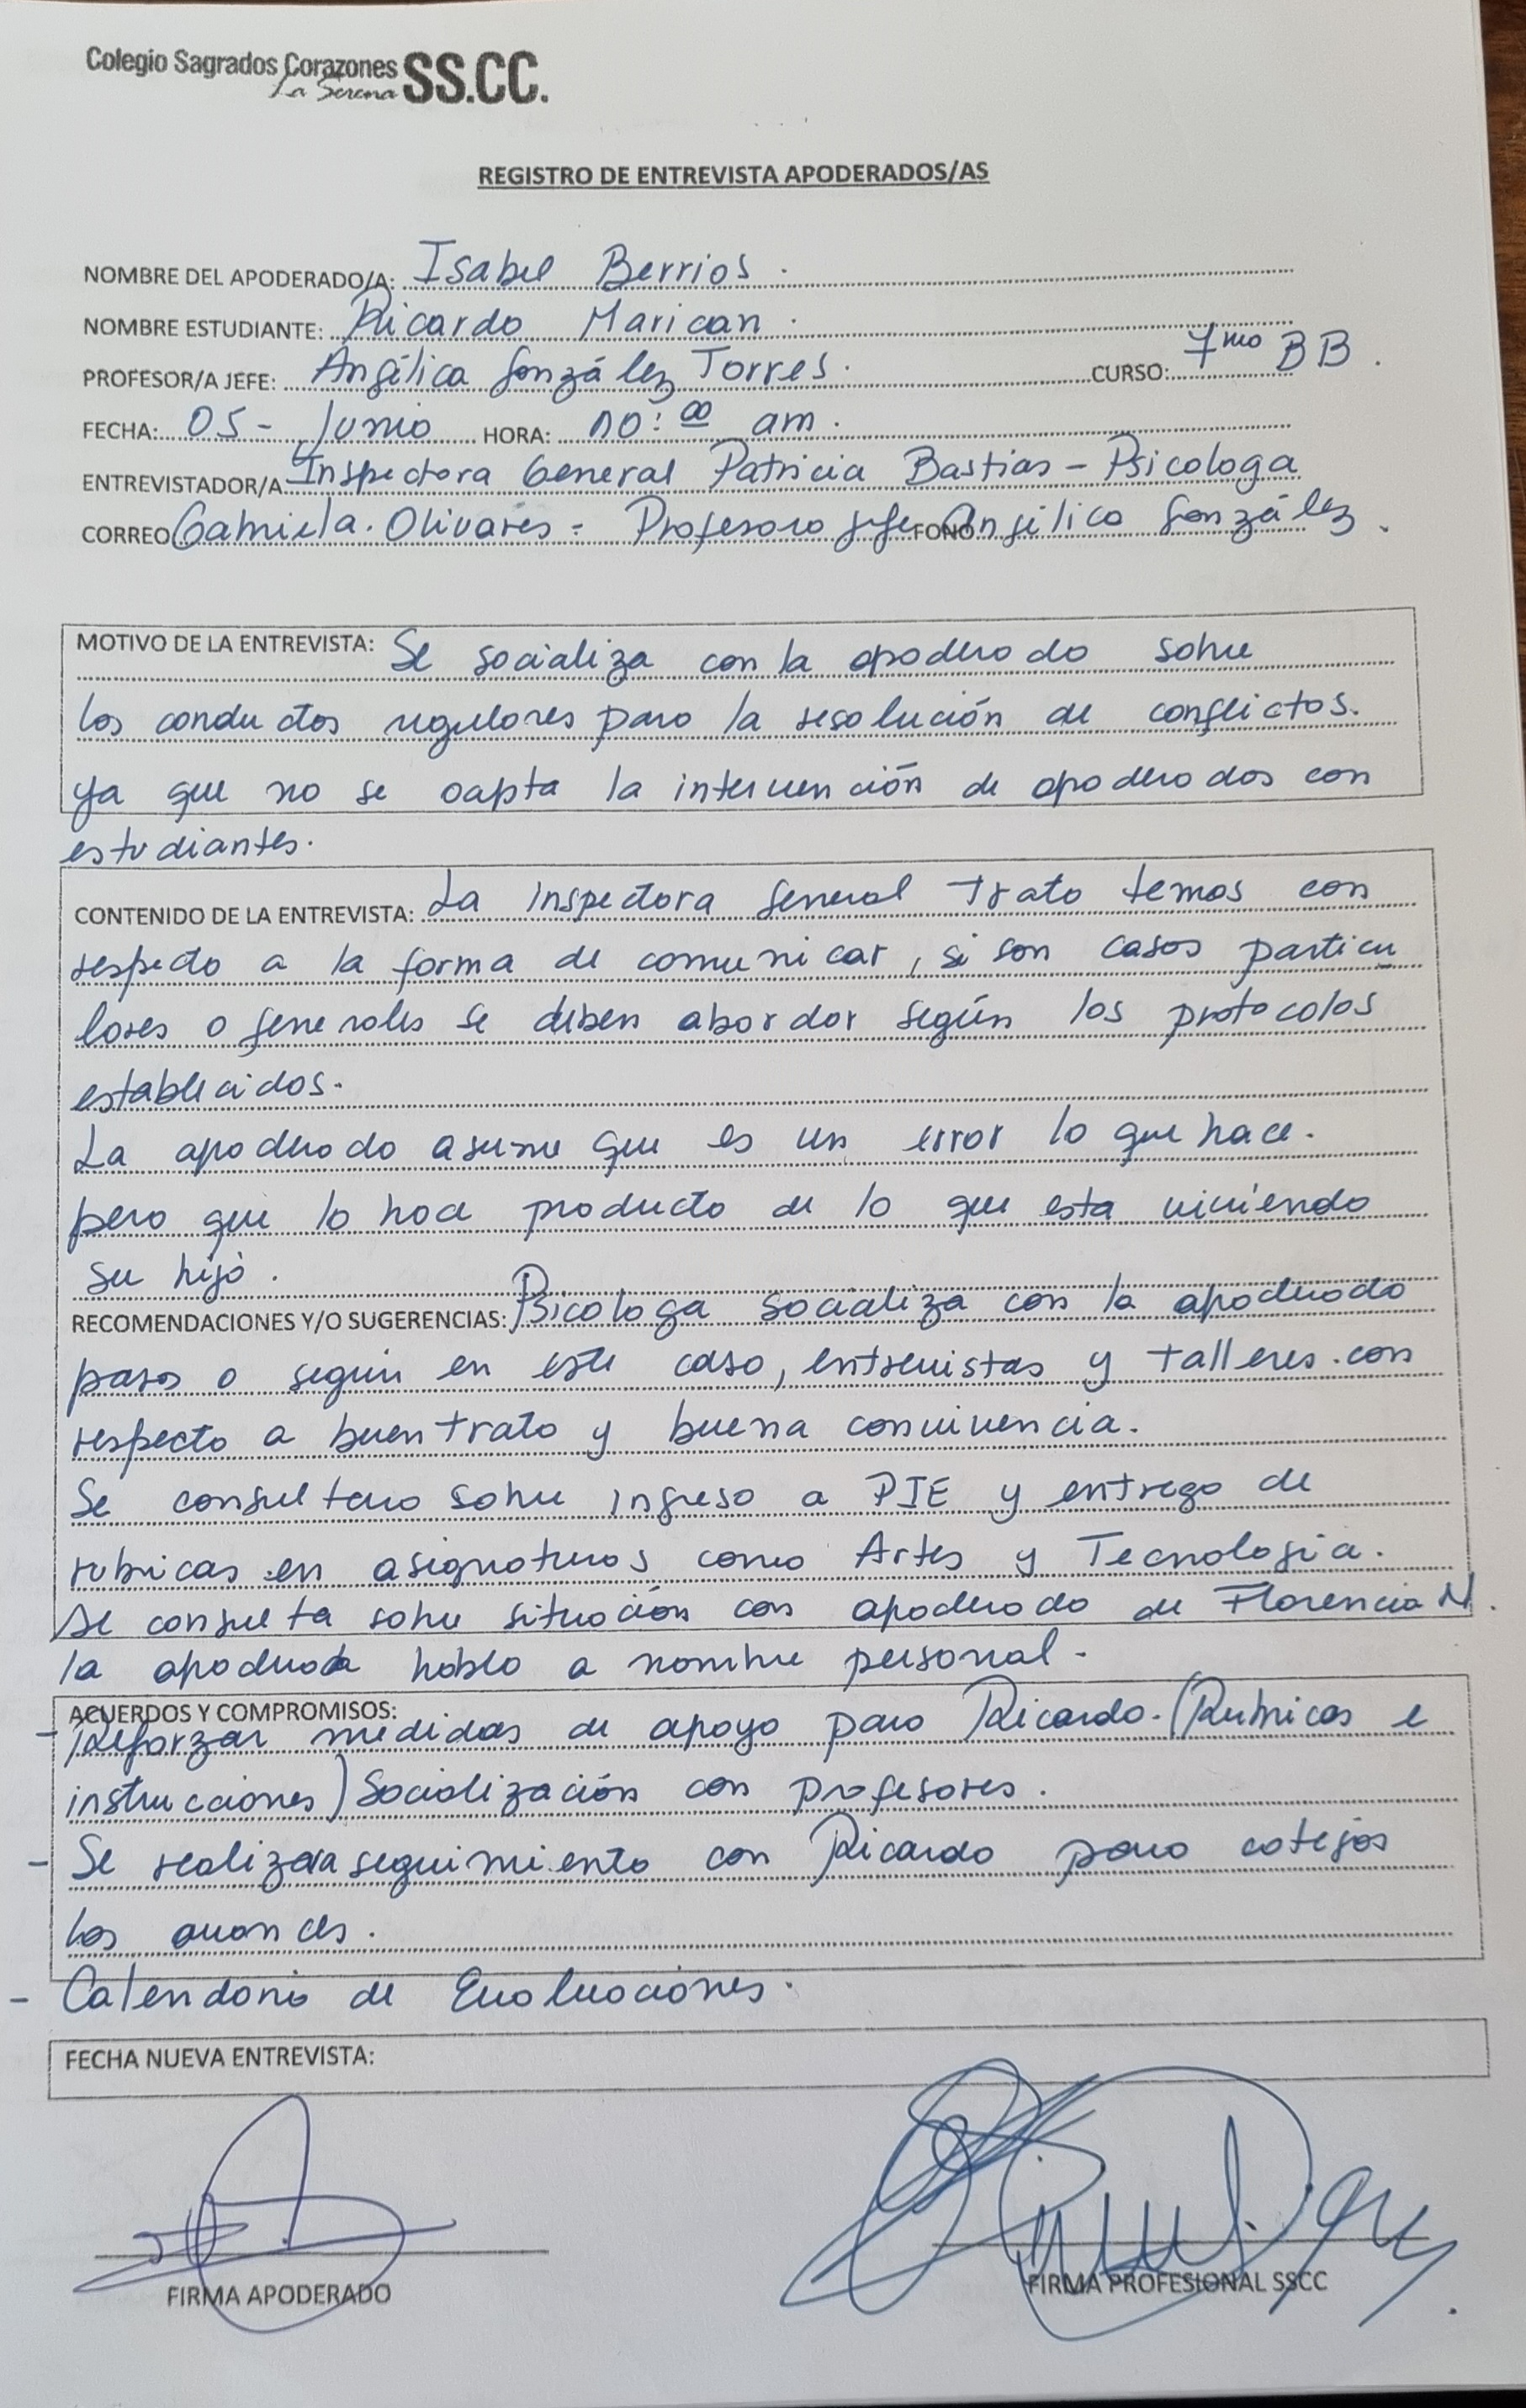 Colegio Sagrados Corazones SS.CC.
La Serena
REGISTRO DE ENTREVISTA APODERADOS/AS
NOMBRE DEL APODERADO/A: Isabel Berrios.
NOMBRE ESTUDIANTE: Ricardo Marican.
PROFESOR/A JEFE: Angélica González Torres. CURSO: 7mo BB.
FECHA: 05- Junio HORA: 10:00 am.
ENTREVISTADOR/A Inspectora General Patricia Bastias - Psicologa
CORREO Gabriela. Olivares - Profesora jefe FONO Angélica González.
MOTIVO DE LA ENTREVISTA: Se socializa con la apoderado sobre
los conductos regulares para la resolución de conflictos.
ya que no se oapta la intervención de apoderados con
estudiantes.
CONTENIDO DE LA ENTREVISTA: La inspectora general trato temas con
respecto a la forma de comunicar, si son casos particu
lares o generales se deben abordar según los protocolos
establecidos.
La apoderado asume que es un error lo que hace.
pero que lo hace producto de lo que esta viviendo
su hijo.
RECOMENDACIONES Y/O SUGERENCIAS: Psicologa socializa con la apoderado
pasos a seguir en este caso, entrevistas y talleres.con
respecto a buen trato y buena convivencia.
Se consultara sobre ingreso a PIE y entrega de
rubricas en asignaturas como Artes y Tecnologia.
Se consulta sobre situación con apoderado de Florencia N.
la apoderada hablo a nombre personal.
ACUERDOS Y COMPROMISOS:
- Reforzar medidas de apoyo para Ricardo. (Rubricas e
instrucciones) Socialización con profesores.
- Se realizara seguimiento con Ricardo para cotejos
los avances.
- Calendario de Evaluaciones.
FECHA NUEVA ENTREVISTA:
FIRMA APODERADO
FIRMA PROFESIONAL SSCC